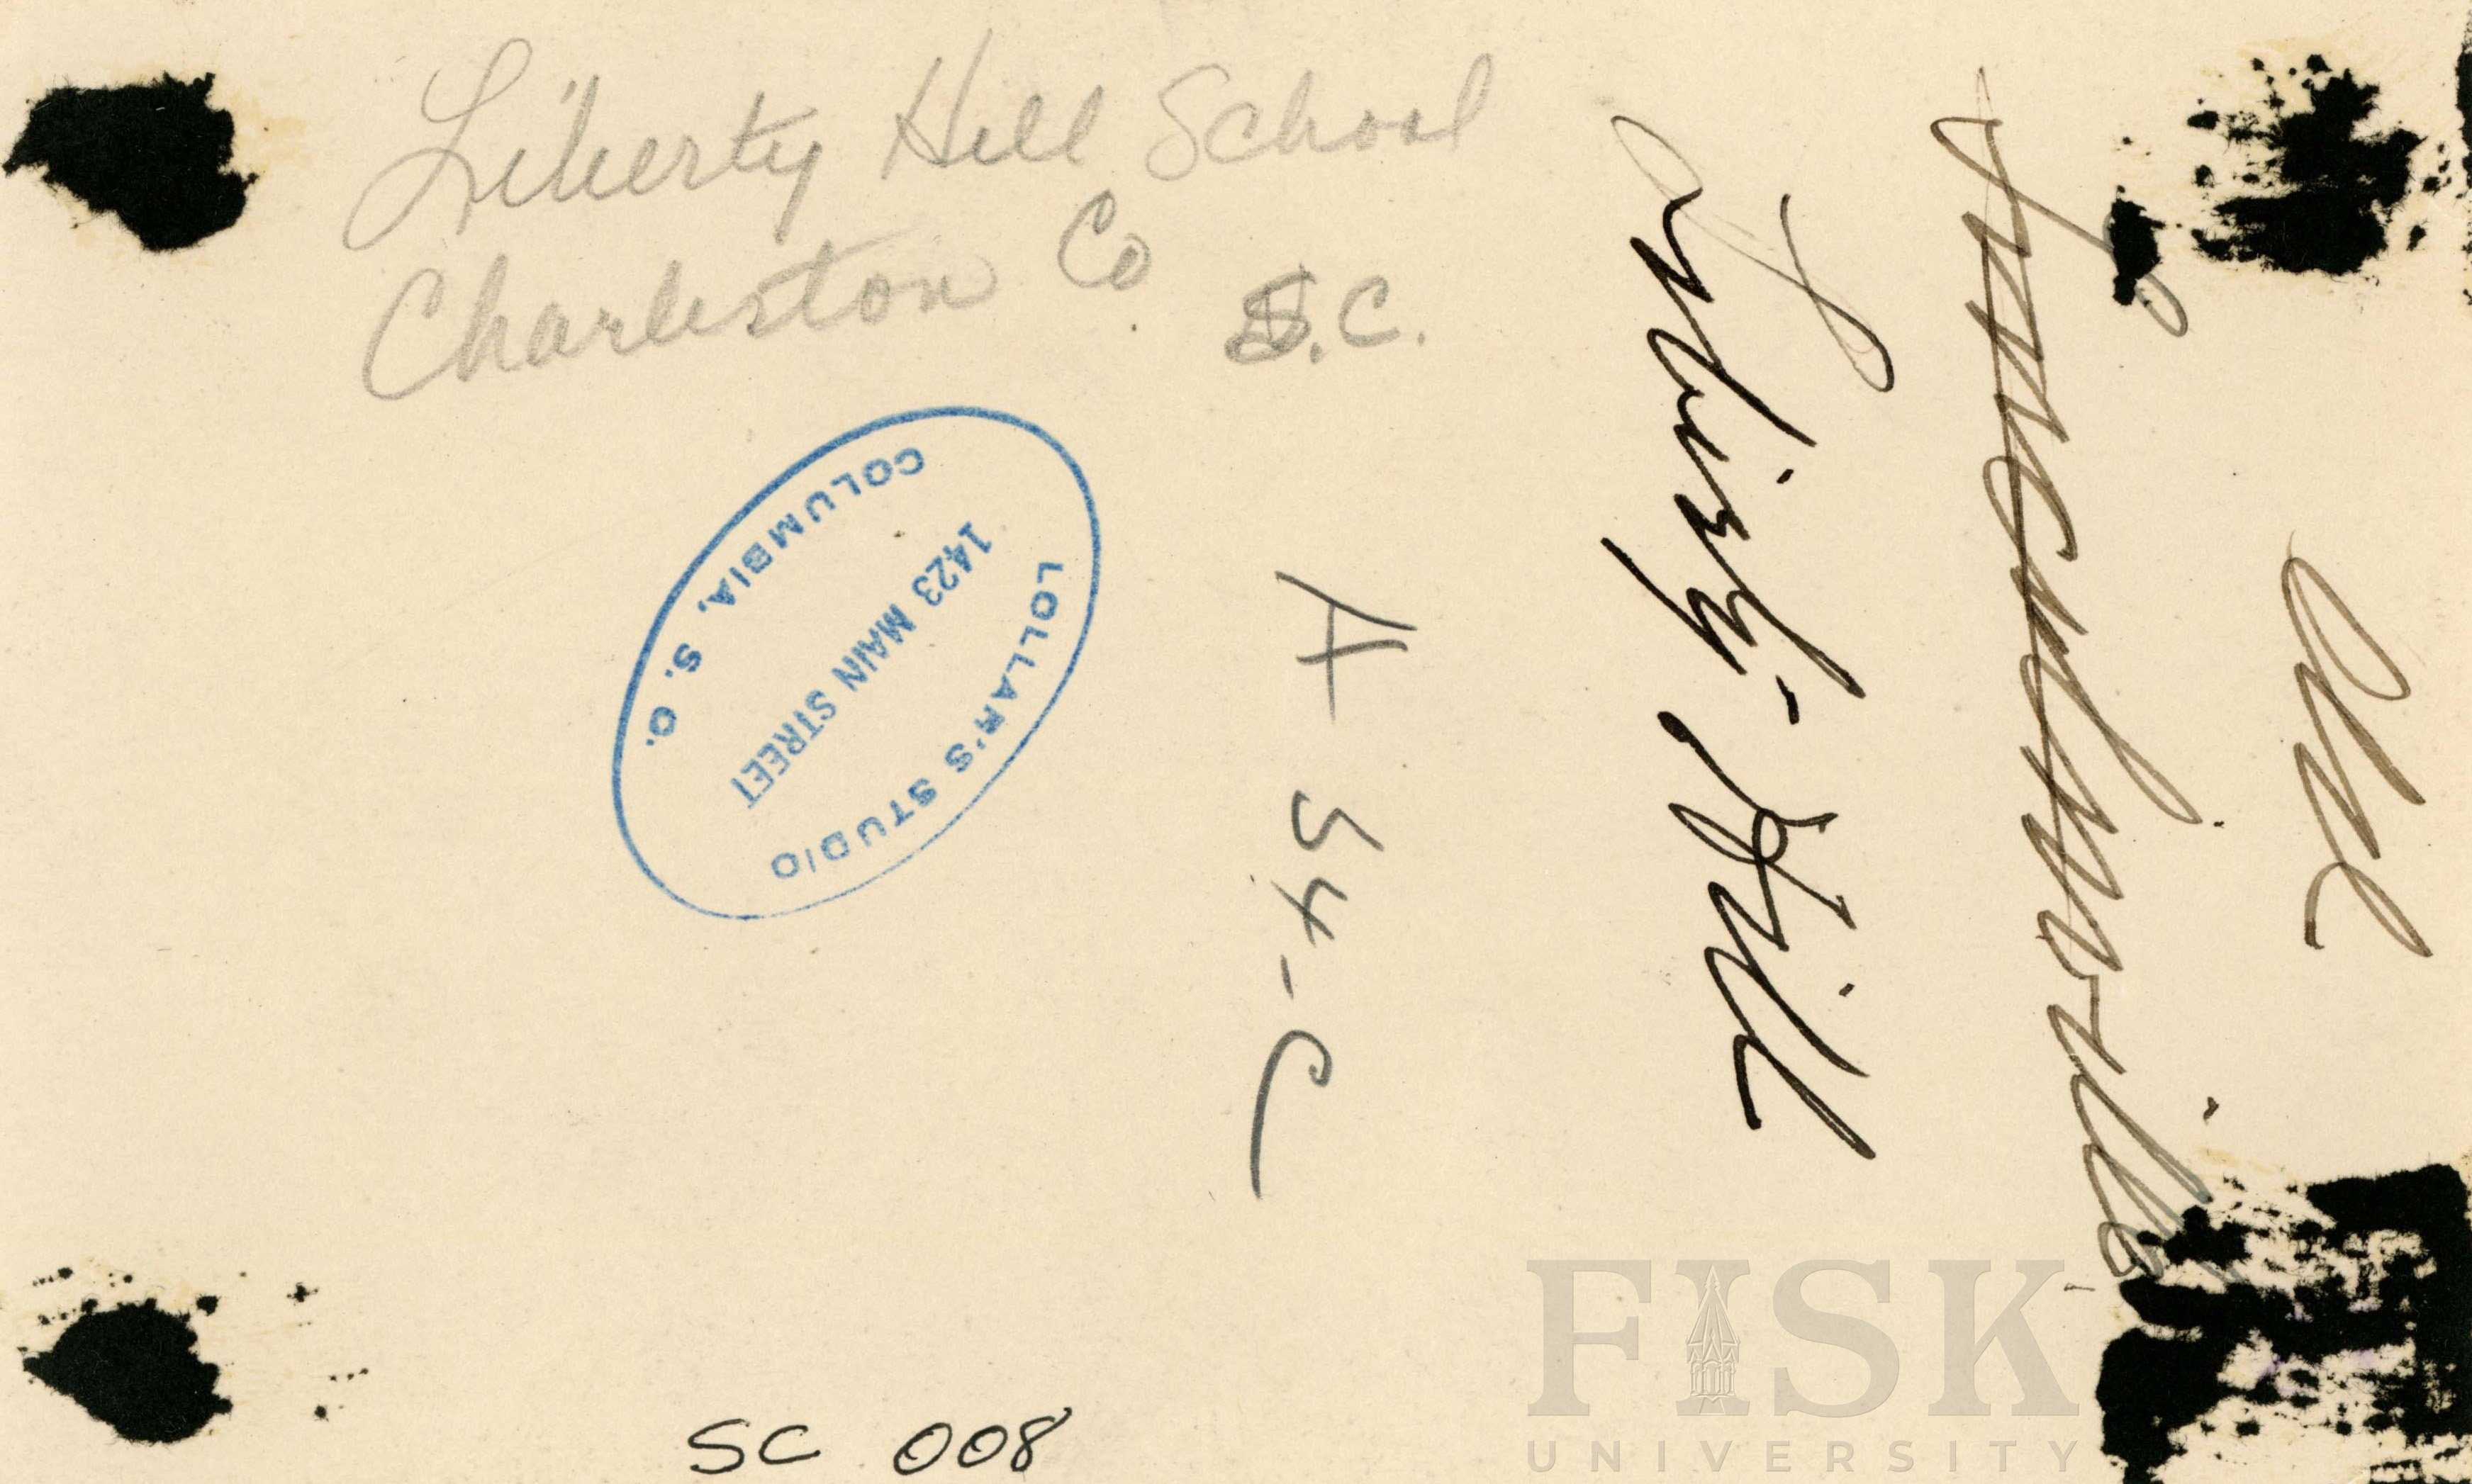 Liberty Hill School
Charleston Co
S.C.
Old
Liberty-Hill
A 54-C
LOLLAR'S STUDIO
1423 MAIN STREET
COLUMBIA, S. C.
SC 008
FISK
UNIVERSITY